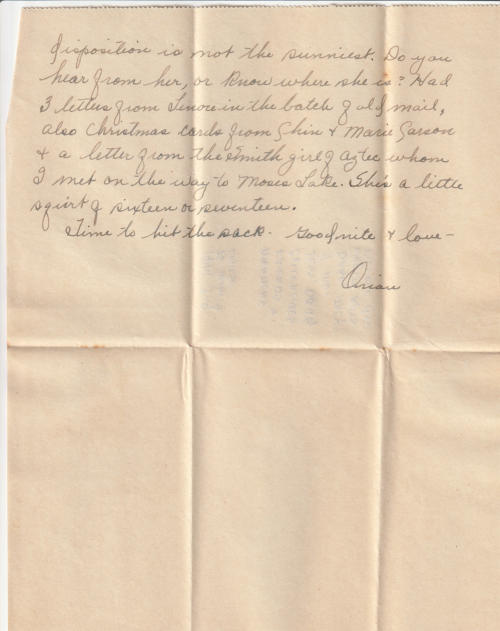 disposition is not the sunniest. Do you
hear from her, or know where she is? Had
3 letters from Lenore in the batch of old mail,
also Christmas cards from Shin & Marie Garson
& a letter from the Smith girl of Aztec whom
I met on the way to Moses Lake. She's a little
squirt of sixteen or seventeen.
Time to hit the sack. Goodnite & love -
Orian